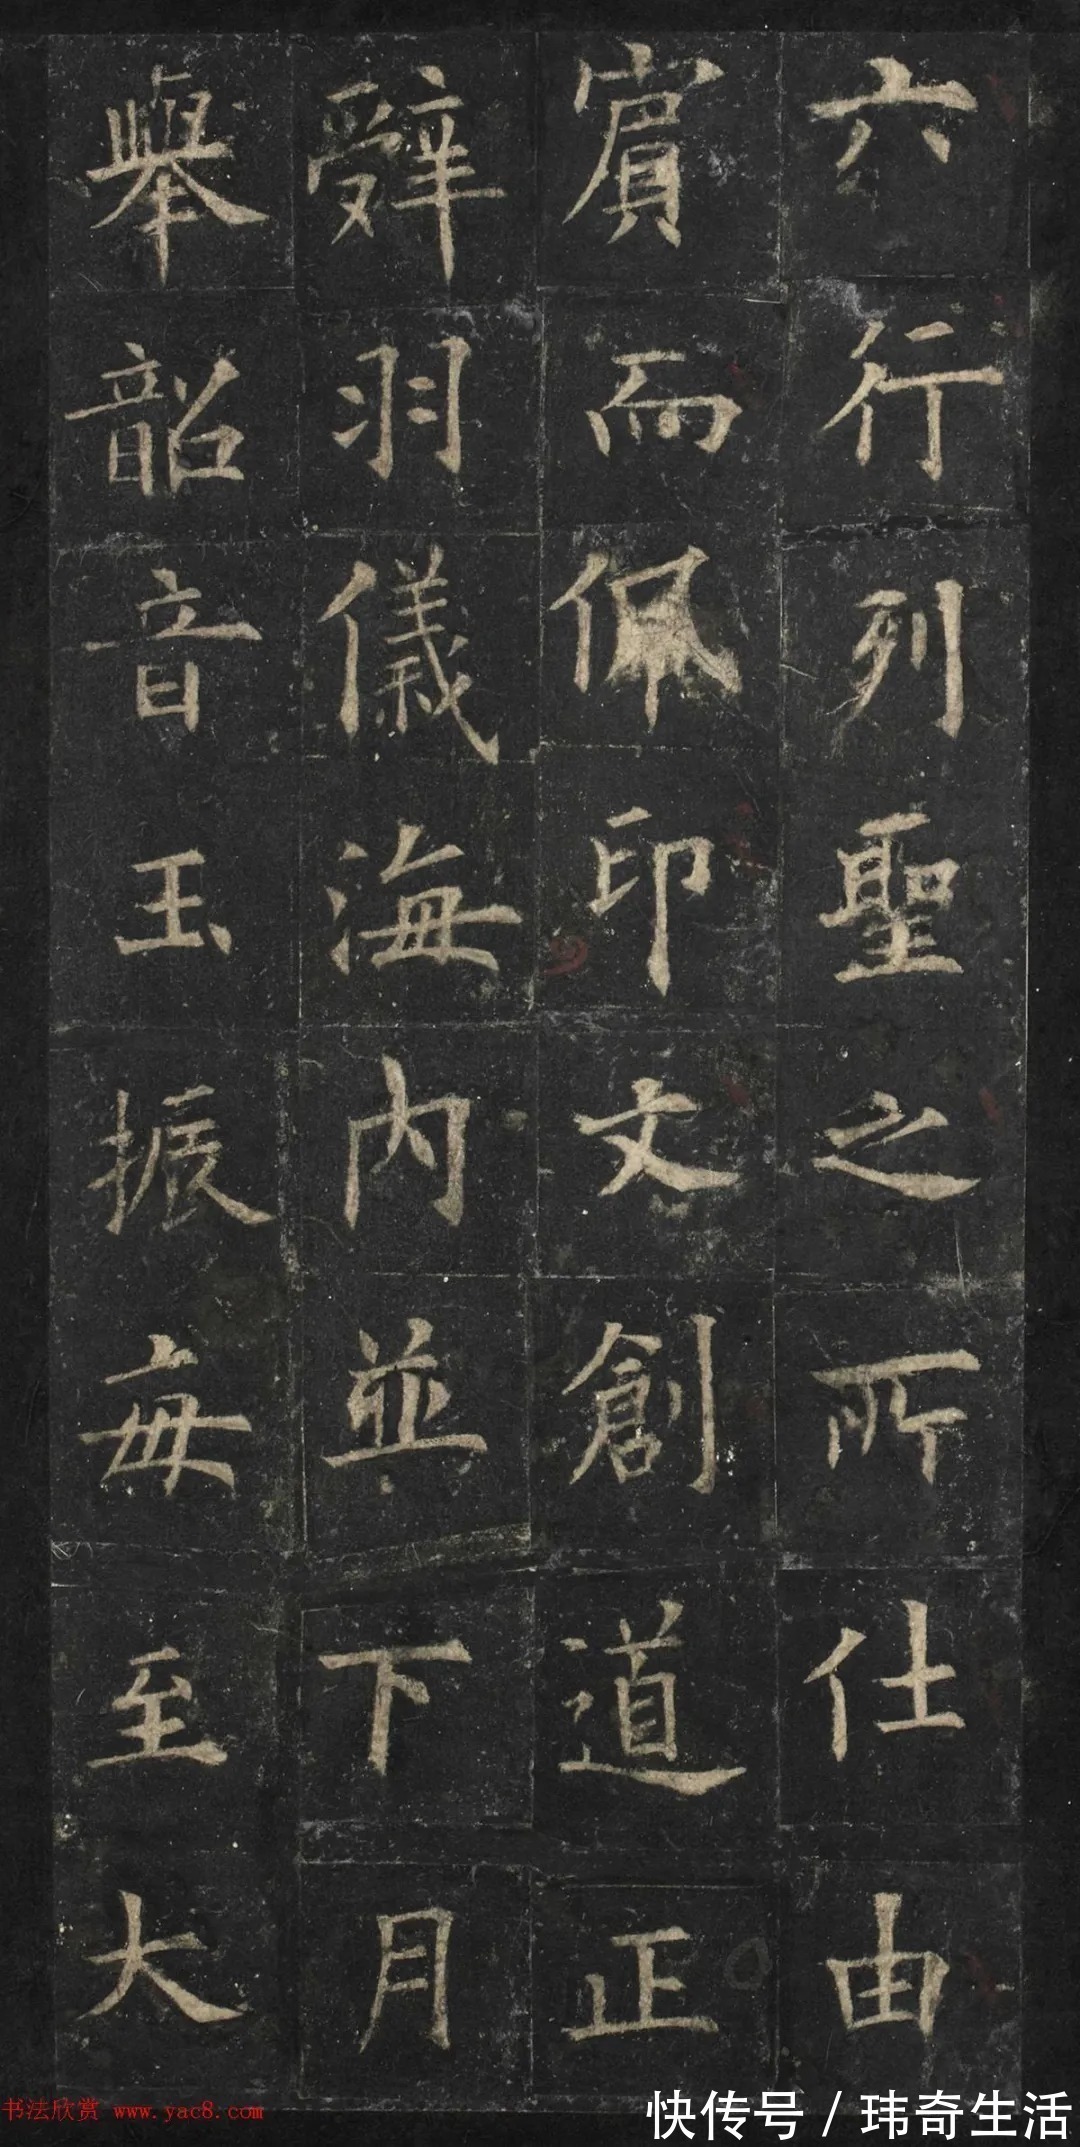 六行列聖之所仕由
賓而佩印文創道正
辤羽儀海内並下月
舉韶音玉振每至大
书法欣赏 www.yac8.com
快传号 / 玮奇生活